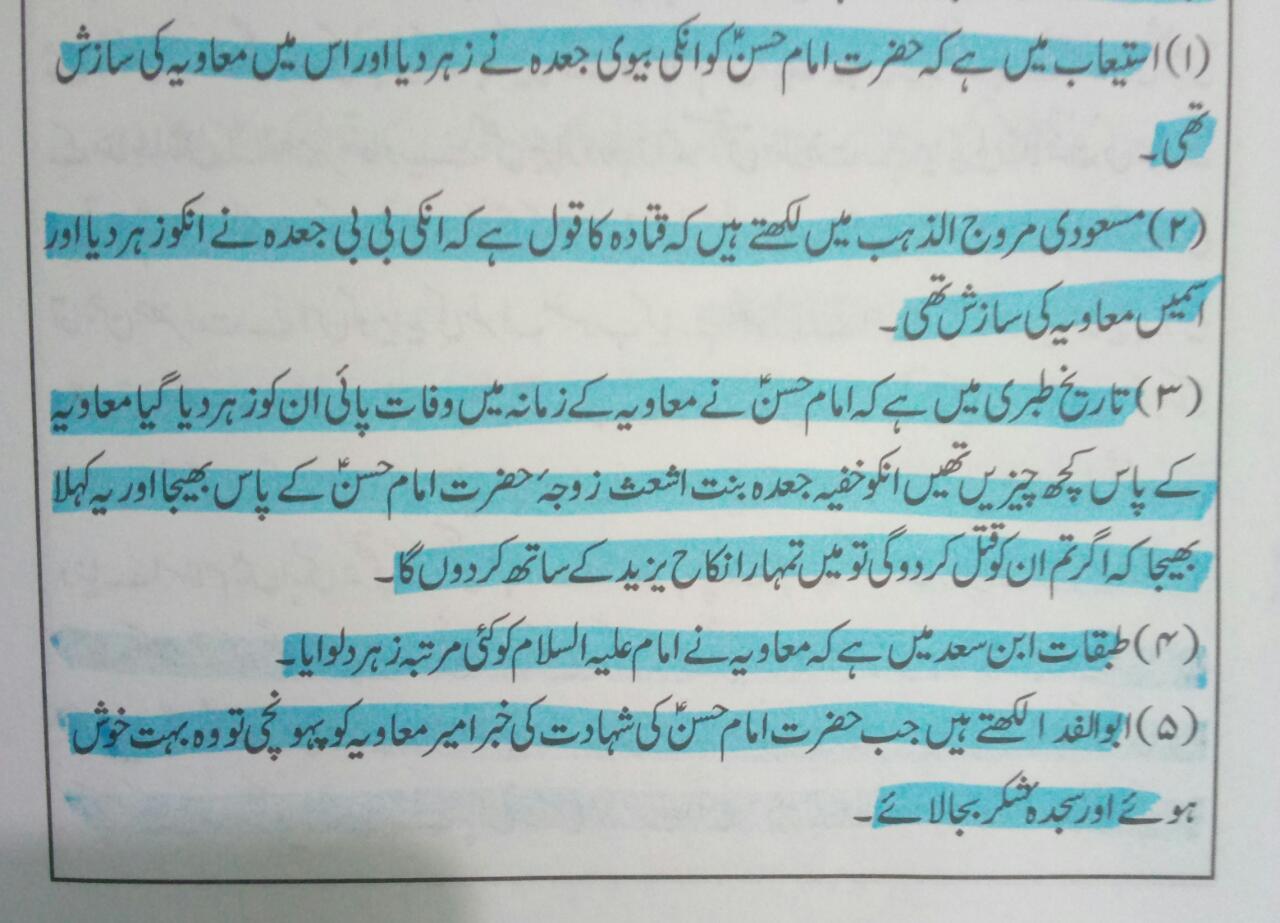 (۱) استیعاب میں ہے کہ حضرت امام حسنؑ کو انکی بیوی جعدہ نے زہر دیا اور اس میں معاویہ کی سازش
تھی۔
(۲) مسعودی مروج الذہب میں لکھتے ہیں کہ قتادہ کا قول ہے کہ انکی بی بی جعدہ نے انکو زہر دیا اور
اسمیں معاویہ کی سازش تھی۔
(۳) تاریخ طبری میں ہے کہ امام حسنؑ نے معاویہ کے زمانہ میں وفات پائی ان کو زہر دیا گیا معاویہ
کے پاس کچھ چیزیں تھیں انکو خفیہ جعدہ بنت اشعث زوجۂ حضرت امام حسنؑ کے پاس بھیجا اور یہ کہلا
بھیجا کہ اگر تم ان کو قتل کردوگی تو میں تمہارا نکاح یزید کے ساتھ کردوں گا۔
(۴) طبقات ابن سعد میں ہے کہ معاویہ نے امام علیہ السلام کو کئی مرتبہ زہر دلوایا۔
(۵) ابوالفدا لکھتے ہیں جب حضرت امام حسنؑ کی شہادت کی خبر امیر معاویہ کو پہونچی تو وہ بہت خوش
ہوئے اور سجدہ شکر بجالائے۔